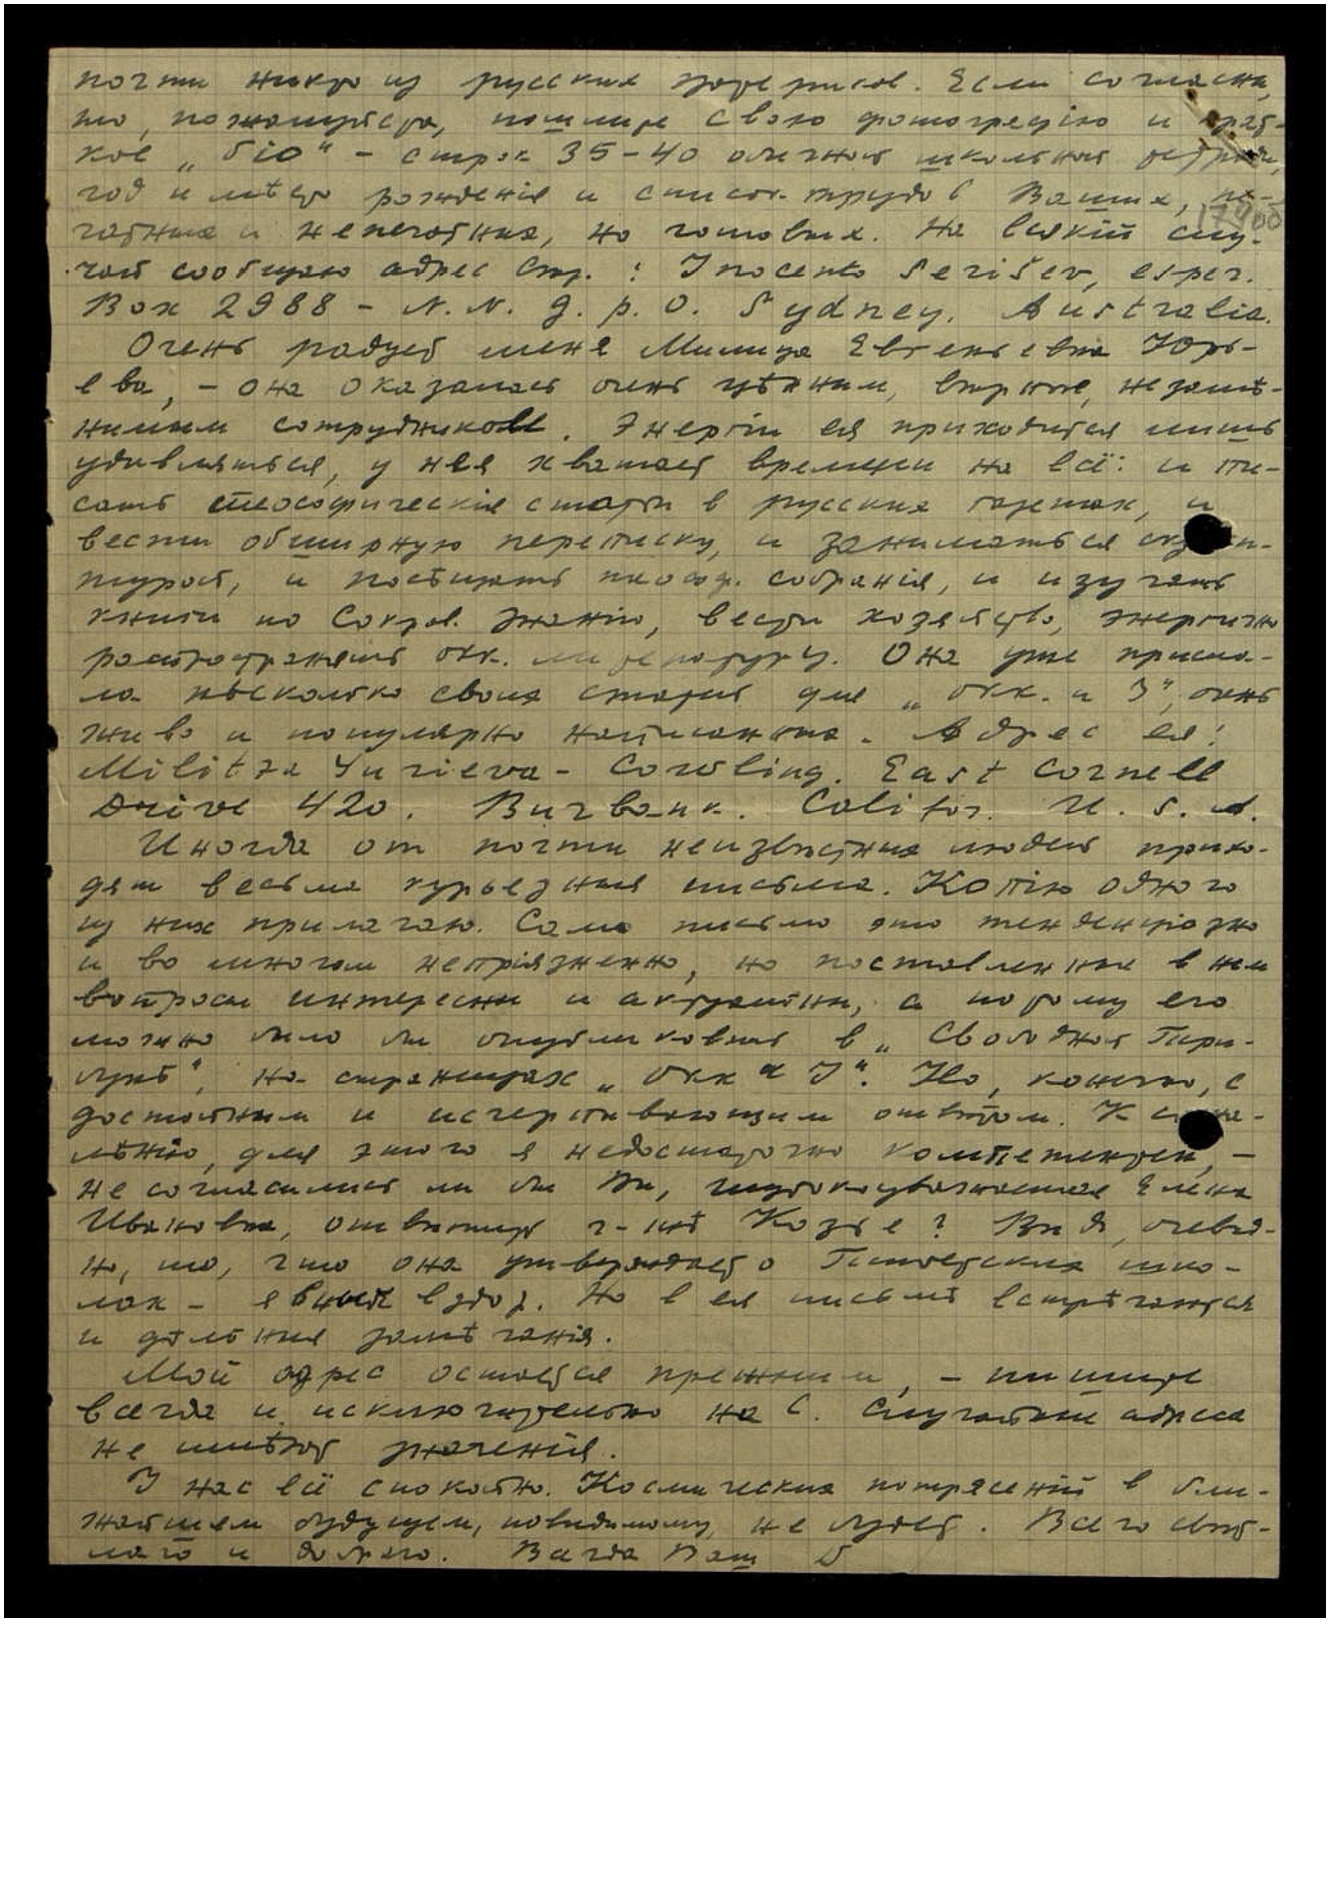 почти никто из русских теперишов. Если согласны,
то, пожалуйста, пошлите свою фотографію и крат-
кое „біо“ – строк 35–40 обычной школьной тетради,
год и мѣсто рожденія и список трудов Ваших, пе-
17400
чатных и непечатных, но готовых. На всякій слу-
чай сообщаю адрес Стр.: Inocento Serišev, esper.
Box 2988 – N. N. G. p. O. Sydney. Australia.
Очень радует меня Милица Евгеньевна Юрь-
ева, – она оказалась очень цѣнным, вѣрнѣе, незамѣ-
нимым сотрудником. Энергіи ея приходится лишь
удивляться, у нея хватает времени на всё: и пи-
сать теософическія статьи в русских газетах, и
вести обширную переписку, и заниматься скульп-
турой, и посѣщать теософ. собранія, и изучать
книги по Сокров. Знанію, вести хозяйство, энергично
распространять окк. литературу. Она уже присла-
ла нѣсколько своих статей для „Окк. и Й“, очень
живо и популярно написанных. Адрес ея:
Militza Yurieva – Cowling. East Cornell
Drive 420. Burbank. Califor. U. S. A.
Иногда от почти неизвѣстных людей прихо-
дят весьма курьезныя письма. Копію одного
из них прилагаю. Само письмо это тенденціозно
и во многом непріязненно, но поставленные в нем
вопросы интересны и актуальны, а потому его
можно было бы опубликовать в „Свободной Три-
бунѣ“, на страницах „Окк и Й“. Но, конечно, с
достойным и исчерпывающим отвѣтом. К сожа-
лѣнію, для этого я недостаточно компетентен, –
не согласились ли бы Вы, глубокоуважаемая Елена
Ивановна, отвѣтить г-жѣ Козье? Вѣдь, очевид-
но, то, что она утверждает о Тибетских шко-
лах – явный вздор. Но в ея письмѣ встрѣчаются
и дѣльныя замѣчанія.
Мой адрес остается прежним, – пишите
всегда и исключительно на С. Случайные адреса
не имѣют значенія.
У нас всё спокойно. Космических потрясеній в бли-
жайшем будущем, повидимому, не будет. Всего свѣт-
лаго и добраго. Всегда Ваш